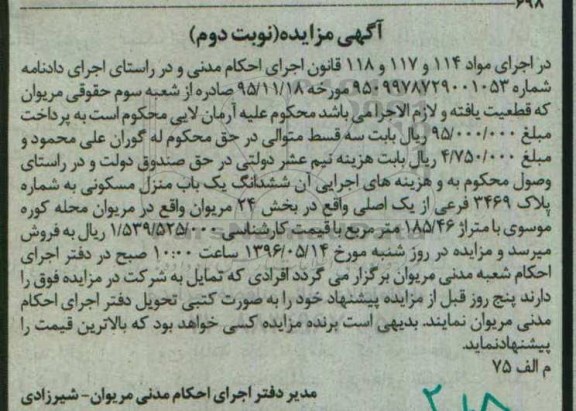 ۶۹۸
آگهی مزایده(نوبت دوم)
در اجرای مواد ۱۱۴ و ۱۱۷ و ۱۱۸ قانون اجرای احکام مدنی و در راستای اجرای دادنامه
شماره ۹۵۰۹۹۷۸۷۲۹۰۰۱۰۵۳ مورخه ۹۵/۱۱/۱۸ صادره از شعبه سوم حقوقی مریوان
که قطعیت یافته و لازم الاجرا می باشد محکوم علیه آرمان لایی محکوم است به پرداخت
مبلغ ۹۵/۰۰۰/۰۰۰ ریال بابت سه قسط متوالی در حق محکوم له گوران علی محمود و
مبلغ ۴/۷۵۰/۰۰۰ ریال بابت هزینه نیم عشر دولتی در حق صندوق دولت و در راستای
وصول محکوم به و هزینه های اجرایی آن ششدانگ یک باب منزل مسکونی به شماره
پلاک ۳۴۶۹ فرعی از یک اصلی واقع در بخش ۲۴ مریوان واقع در مریوان محله کوره
موسوی با متراژ ۱۸۵/۴۶ متر مربع با قیمت کارشناسی ۱/۵۳۹/۵۲۵/۰۰۰ ریال به فروش
میرسد و مزایده در روز شنبه مورخ ۱۳۹۶/۰۵/۱۴ ساعت ۱۰:۰۰ صبح در دفتر اجرای
احکام شعبه مدنی مریوان برگزار می گردد افرادی که تمایل به شرکت در مزایده فوق را
دارند پنج روز قبل از مزایده پیشنهاد خود را به صورت کتبی تحویل دفتر اجرای احکام
مدنی مریوان نمایند. بدیهی است برنده مزایده کسی خواهد بود که بالاترین قیمت را
پیشنهادنماید.
م الف ۷۵
مدیر دفتر اجرای احکام مدنی مریوان- شیرزادی